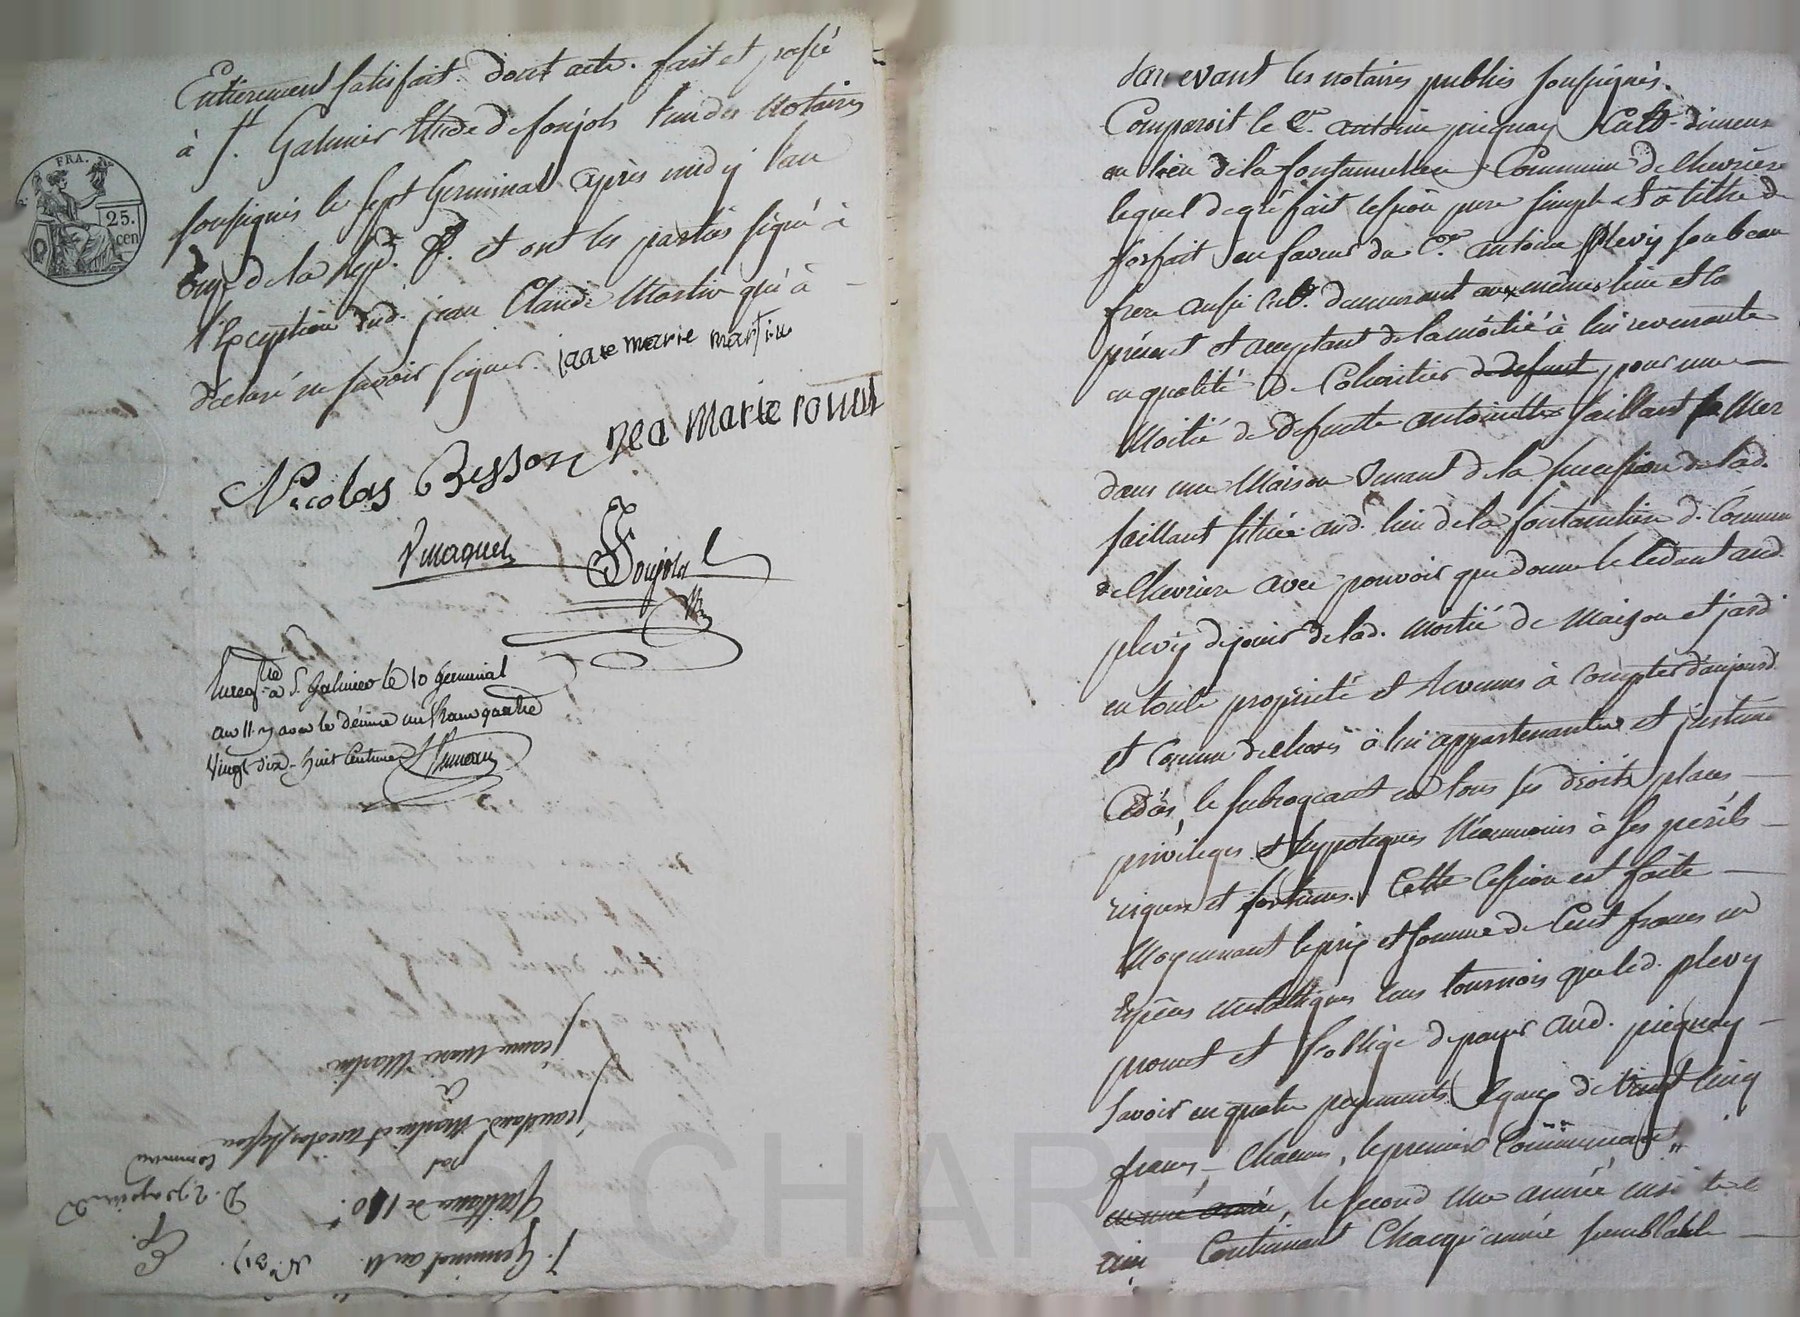 Entierement satisfait. dont acte. fait et passé
à St. Galmier Etude de foujols l'un des Notaires
soussignés le sept Germinal après midy l'an
onze de la Rep. f. et ont les parties signé à
l'Exception dud. jean Claude Martin qui a
déclaré ne savoir signer. jane marie martin
Nicolas Besson marie
Foujols
FRA.
25.
cen
Enregtré à St. Galmier le 10 Germinal
an 11. reçu le décime un franc quatre
Vingt dix-huit Centimes
7. Germinal an 11. No. 317.
Quittance de 110.
par
jean Claude Martin et nicolas Besson
à
jeanne Marie Martin
Pardevant les notaires publics soussignés.
Comparoit le Cn. antoine picquay Cultr. dimeurt
au lieu de la fontanelliere Commune de Chevriere
lequel de gré fait cession pure simple et à tittre de
forfait en faveur du Cn. antoine plevy son beau
frere aussi Cultr. demeurant aux mêmes lieu et Co
présent et acceptant de la moitié à lui revenante
en qualité de Coheritier de defunt pour une
Moitié de defunte antoinette faillant sa Mer
dans une Maison venant de la succession de lad.
faillant située aud. lieu de la fontaneliere d. Commun
de Chevriere avec pouvoir que donne le Cedant aud.
plevy de jouir de lad. Moitié de Maison et jard
en toute propriété et Revenus à Compter d'aujourd.
et Comme de choses à lui appartenantes et justeme
Cédées, le subrogeant en tous ses droits places
privileges et hypoteques Néanmoins à ses périls
risques et fortunes. Cette Cession est faite
Moyennant le prix et somme de Cent francs en
Espèces metalliques livres tournois que led. plevy
promet et s'oblige de payer aud. picquay
Savoir en quatre payements Egaux de Vingt Cinq
francs Chacuns, le premier Commencant
en une année, le second une année ensuite
ainsi Continuant Chaque année semblable
CHAREY